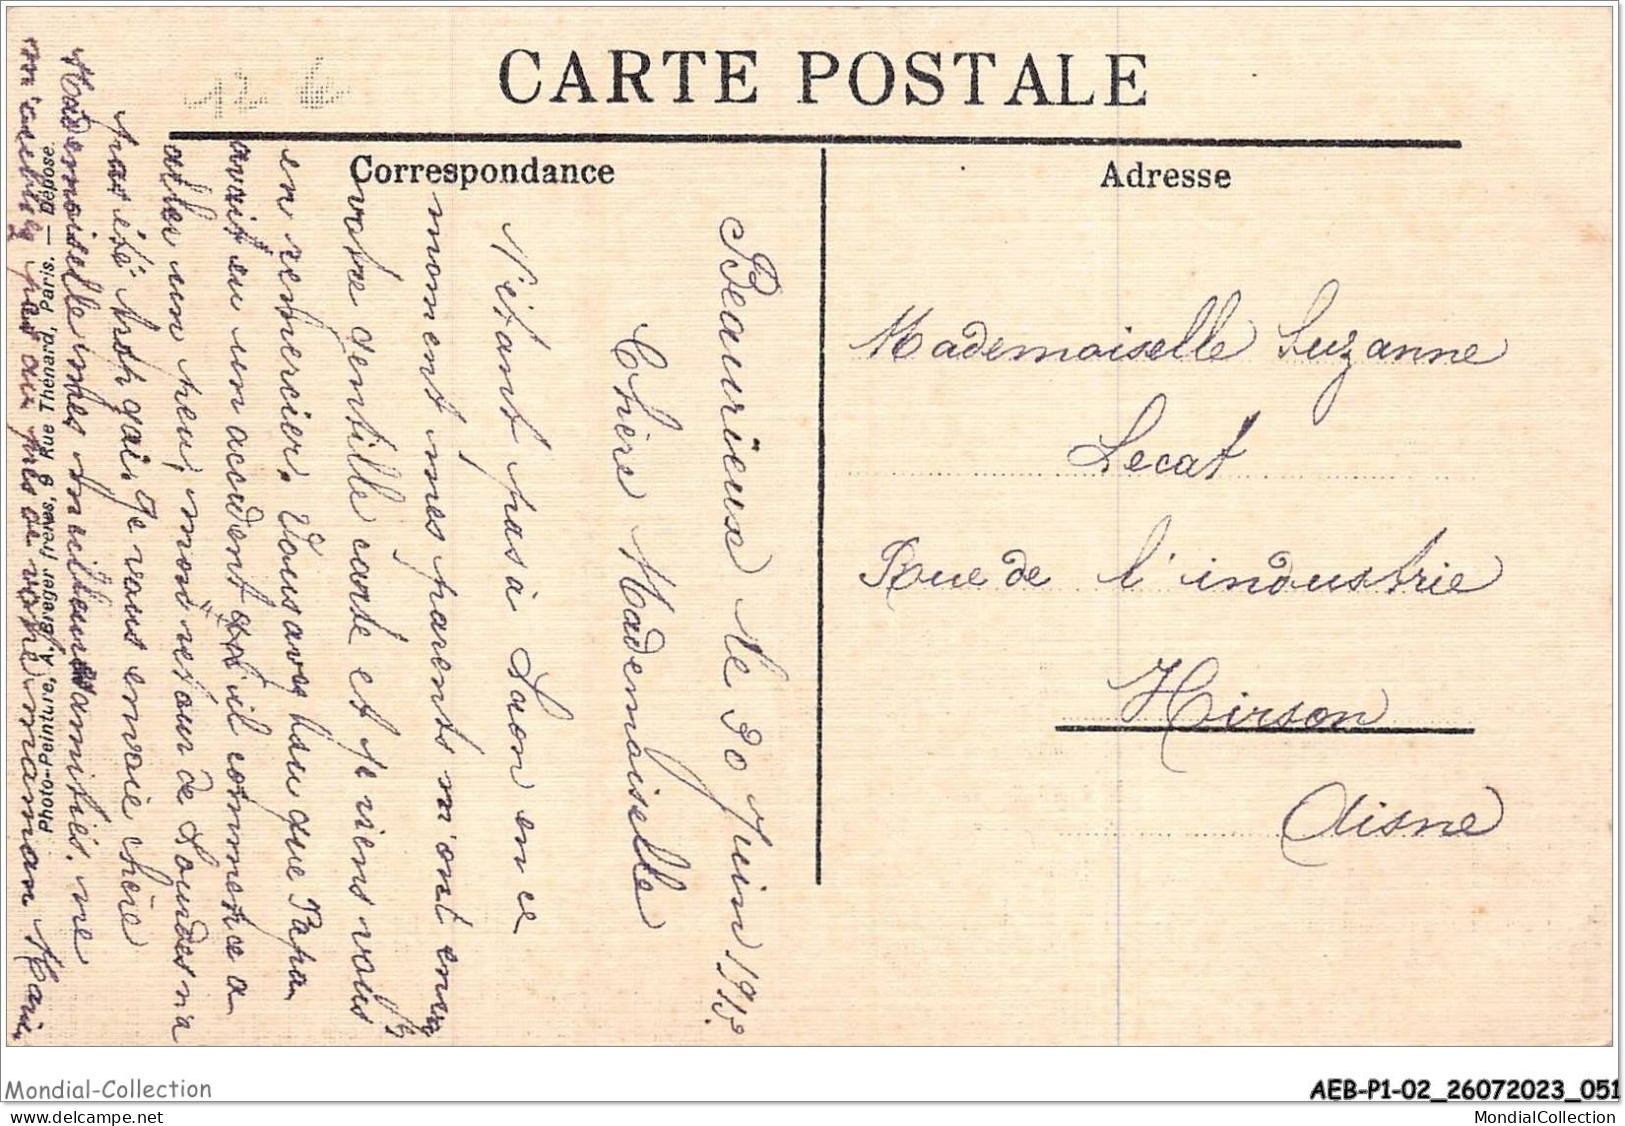 CARTE POSTALE
Correspondance
Adresse
12 6
Beaurieux le 30 Juin 191
Chère Mademoiselle
N'étant pas à Laon en ce
moment mes parents m'ont envoyé
votre gentille carte et je viens vous
en remercier. Vous avez su que Papa
avait eu un accident il commence a
aller un peu, mon retour de Lourdes n'a
pas été trop gai. Je vous envoie chère
Mademoiselle mes meilleures amitiés. ne
m'oubliez pas auprès de votre maman Marie
Photo-Peinture. A. Bergeret frères, 9 Rue Thénard, Paris. — Déposé.
Mademoiselle Suzanne
Lecat
Rue de l'industrie
Hirson
Aisne
Mondial-Collection
AEB-P1-02_26072023_051
MondialCollection.fr
MondialCollection